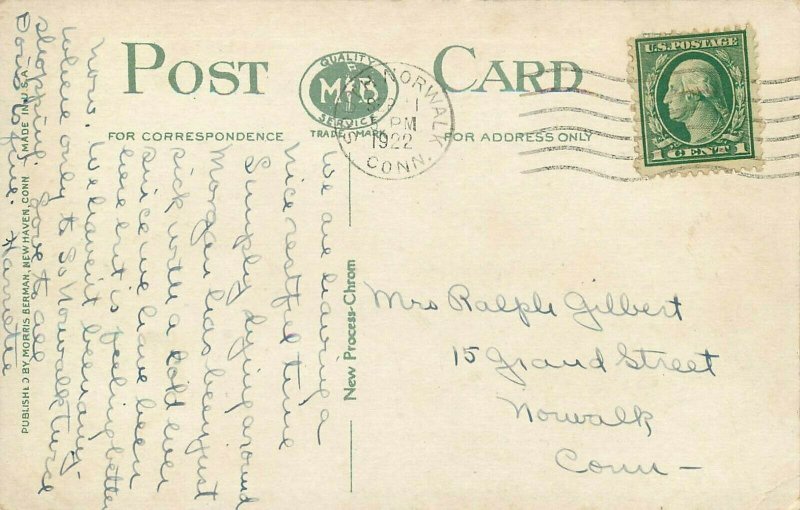 POST CARD
QUALITY
MB
SERVICE
TRADE MARK
FOR CORRESPONDENCE
FOR ADDRESS ONLY
NORWALK
1
PM
1922
CONN.
U.S. POSTAGE
1 CENT 1
We are having a
nice restful time
Simply lying around
Morgan has been just
sick with a cold ever
since we have been
here but is feeling better
now. We haven't been any
where only to So Norwalk twice
shopping. Love to all
Doris is fine.
New Process-Chrom
PUBLISHED BY MORRIS BERMAN, NEW HAVEN, CONN. MADE IN U.S.A.
Mrs Ralph Gilbert
15 Grand Street
Norwalk
Conn -